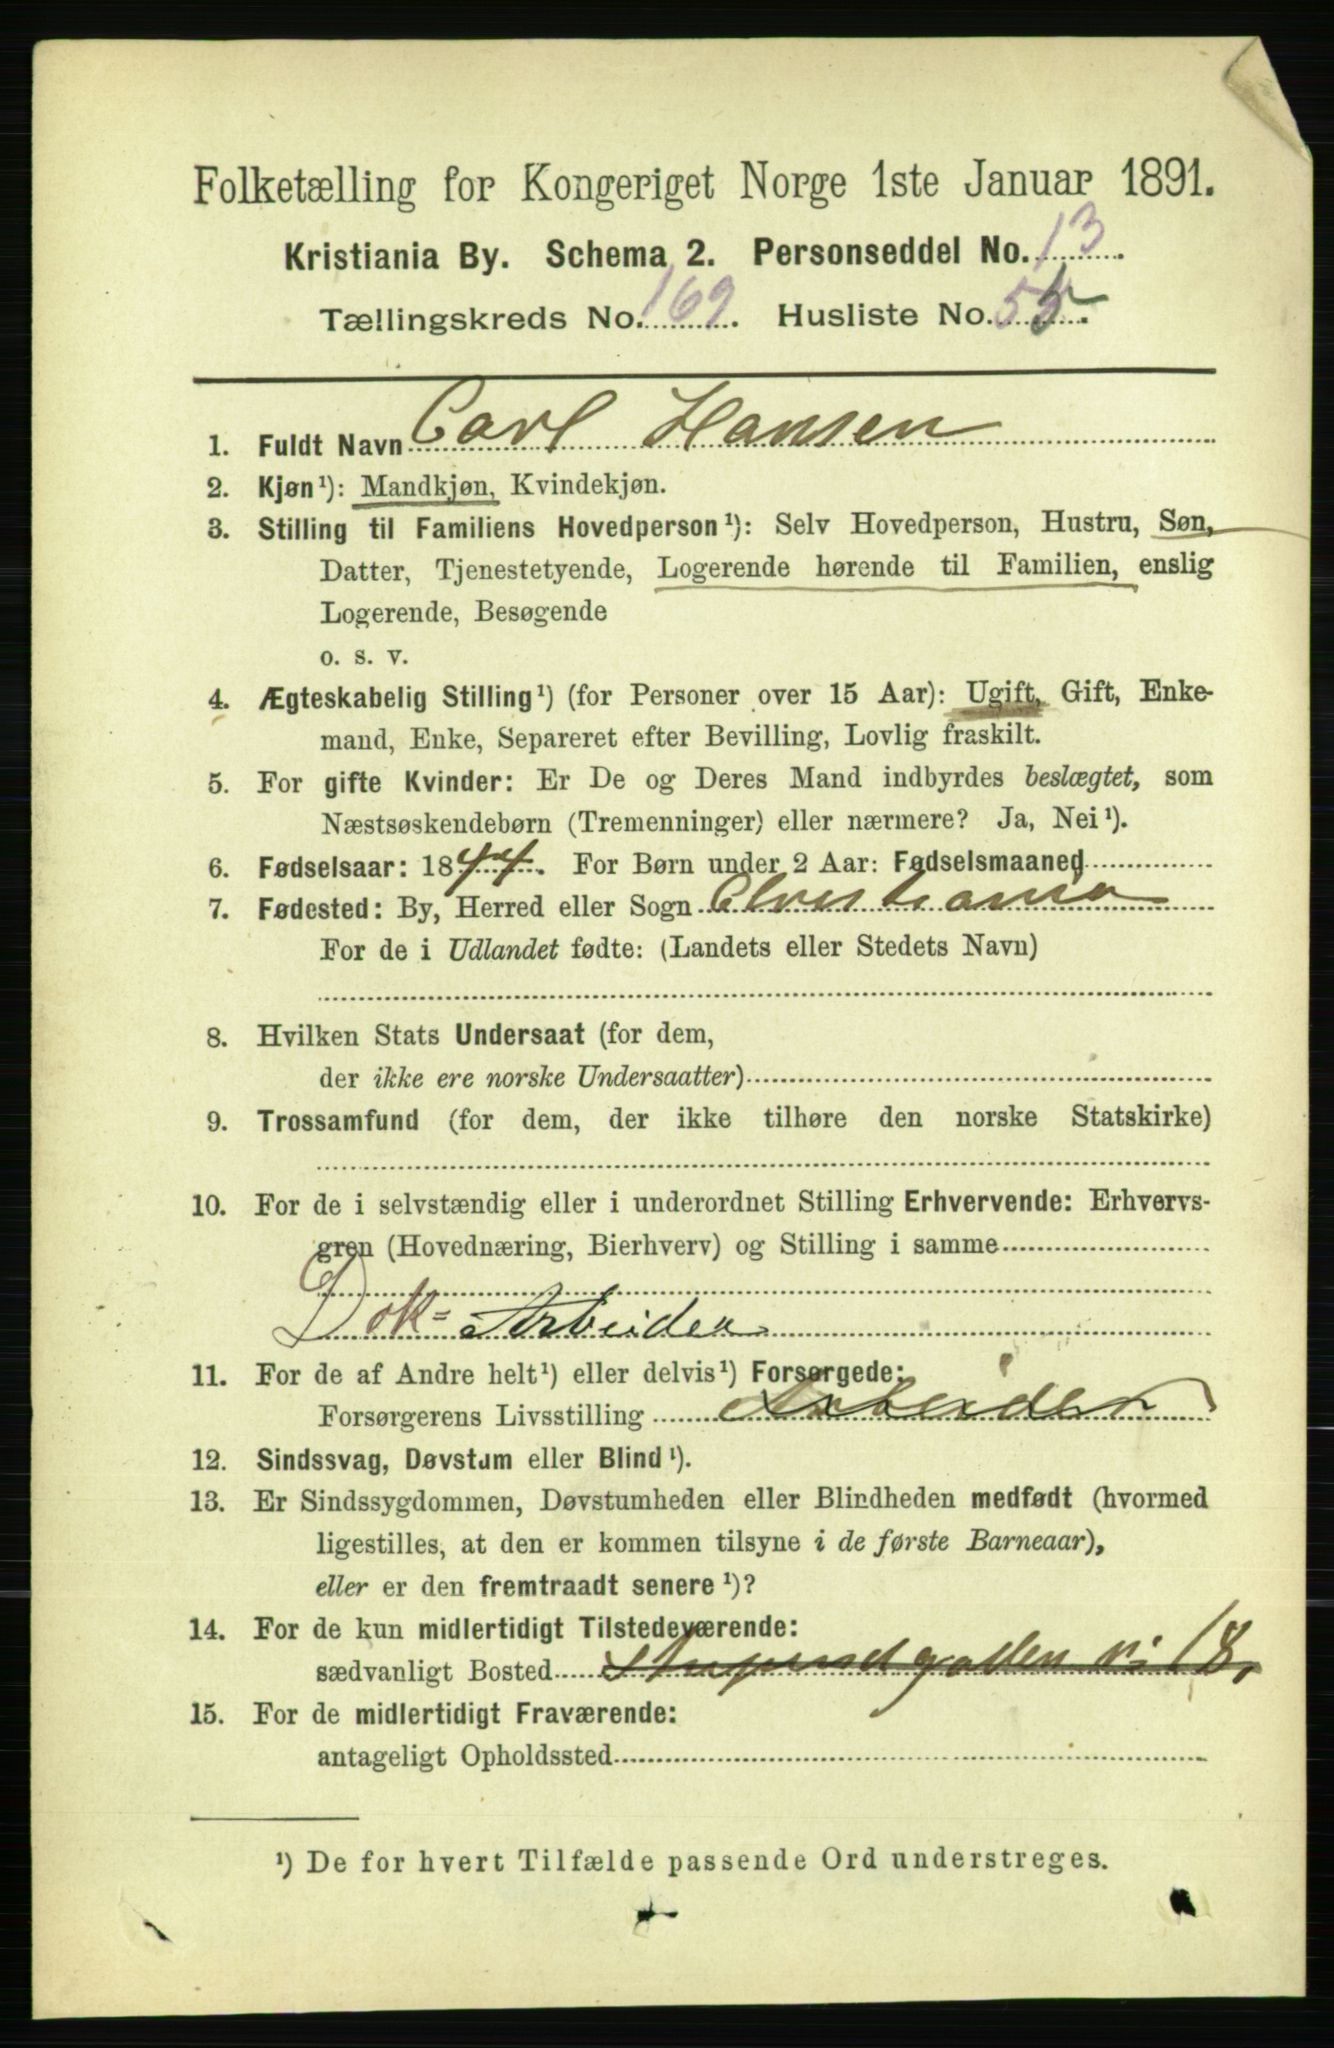 Folketælling for Kongeriget Norge 1ste Januar 1891.
Kristiania By. Schema 2. Personseddel No. 13
Tællingskreds No. 169. Husliste No. 55.
1. Fuldt Navn Carl Hansen
2. Kjøn¹): Mandkjøn, Kvindekjøn.
3. Stilling til Familiens Hovedperson¹): Selv Hovedperson, Hustru, Søn,
Datter, Tjenestetyende, Logerende hørende til Familien, enslig
Logerende, Besøgende
o. s. v.
4. Ægteskabelig Stilling¹) (for Personer over 15 Aar): Ugift, Gift, Enke-
mand, Enke, Separeret efter Bevilling, Lovlig fraskilt.
5. For gifte Kvinder: Er De og Deres Mand indbyrdes beslægtet, som
Næstsøskendebørn (Tremenninger) eller nærmere? Ja, Nei¹).
6. Fødselsaar: 1844. For Børn under 2 Aar: Fødselsmaaned
7. Fødested: By, Herred eller Sogn Christiania
For de i Udlandet fødte: (Landets eller Stedets Navn)
8. Hvilken Stats Undersaat (for dem,
der ikke ere norske Undersaatter)
9. Trossamfund (for dem, der ikke tilhøre den norske Statskirke)
10. For de i selvstændig eller i underordnet Stilling Erhvervende: Erhvervs-
gren (Hovednæring, Bierhverv) og Stilling i samme
Dok= Arbeider
11. For de af Andre helt¹) eller delvis¹) Forsørgede:
Forsørgerens Livsstilling Arbeider
12. Sindssvag, Døvstum eller Blind¹).
13. Er Sindssygdommen, Døvstumheden eller Blindheden medfødt (hvormed
ligestilles, at den er kommen tilsyne i de første Barneaar),
eller er den fremtraadt senere¹)?
14. For de kun midlertidigt Tilstedeværende:
sædvanligt Bosted n: 18,
15. For de midlertidigt Fraværende:
antageligt Opholdssted
¹) De for hvert Tilfælde passende Ord understreges.